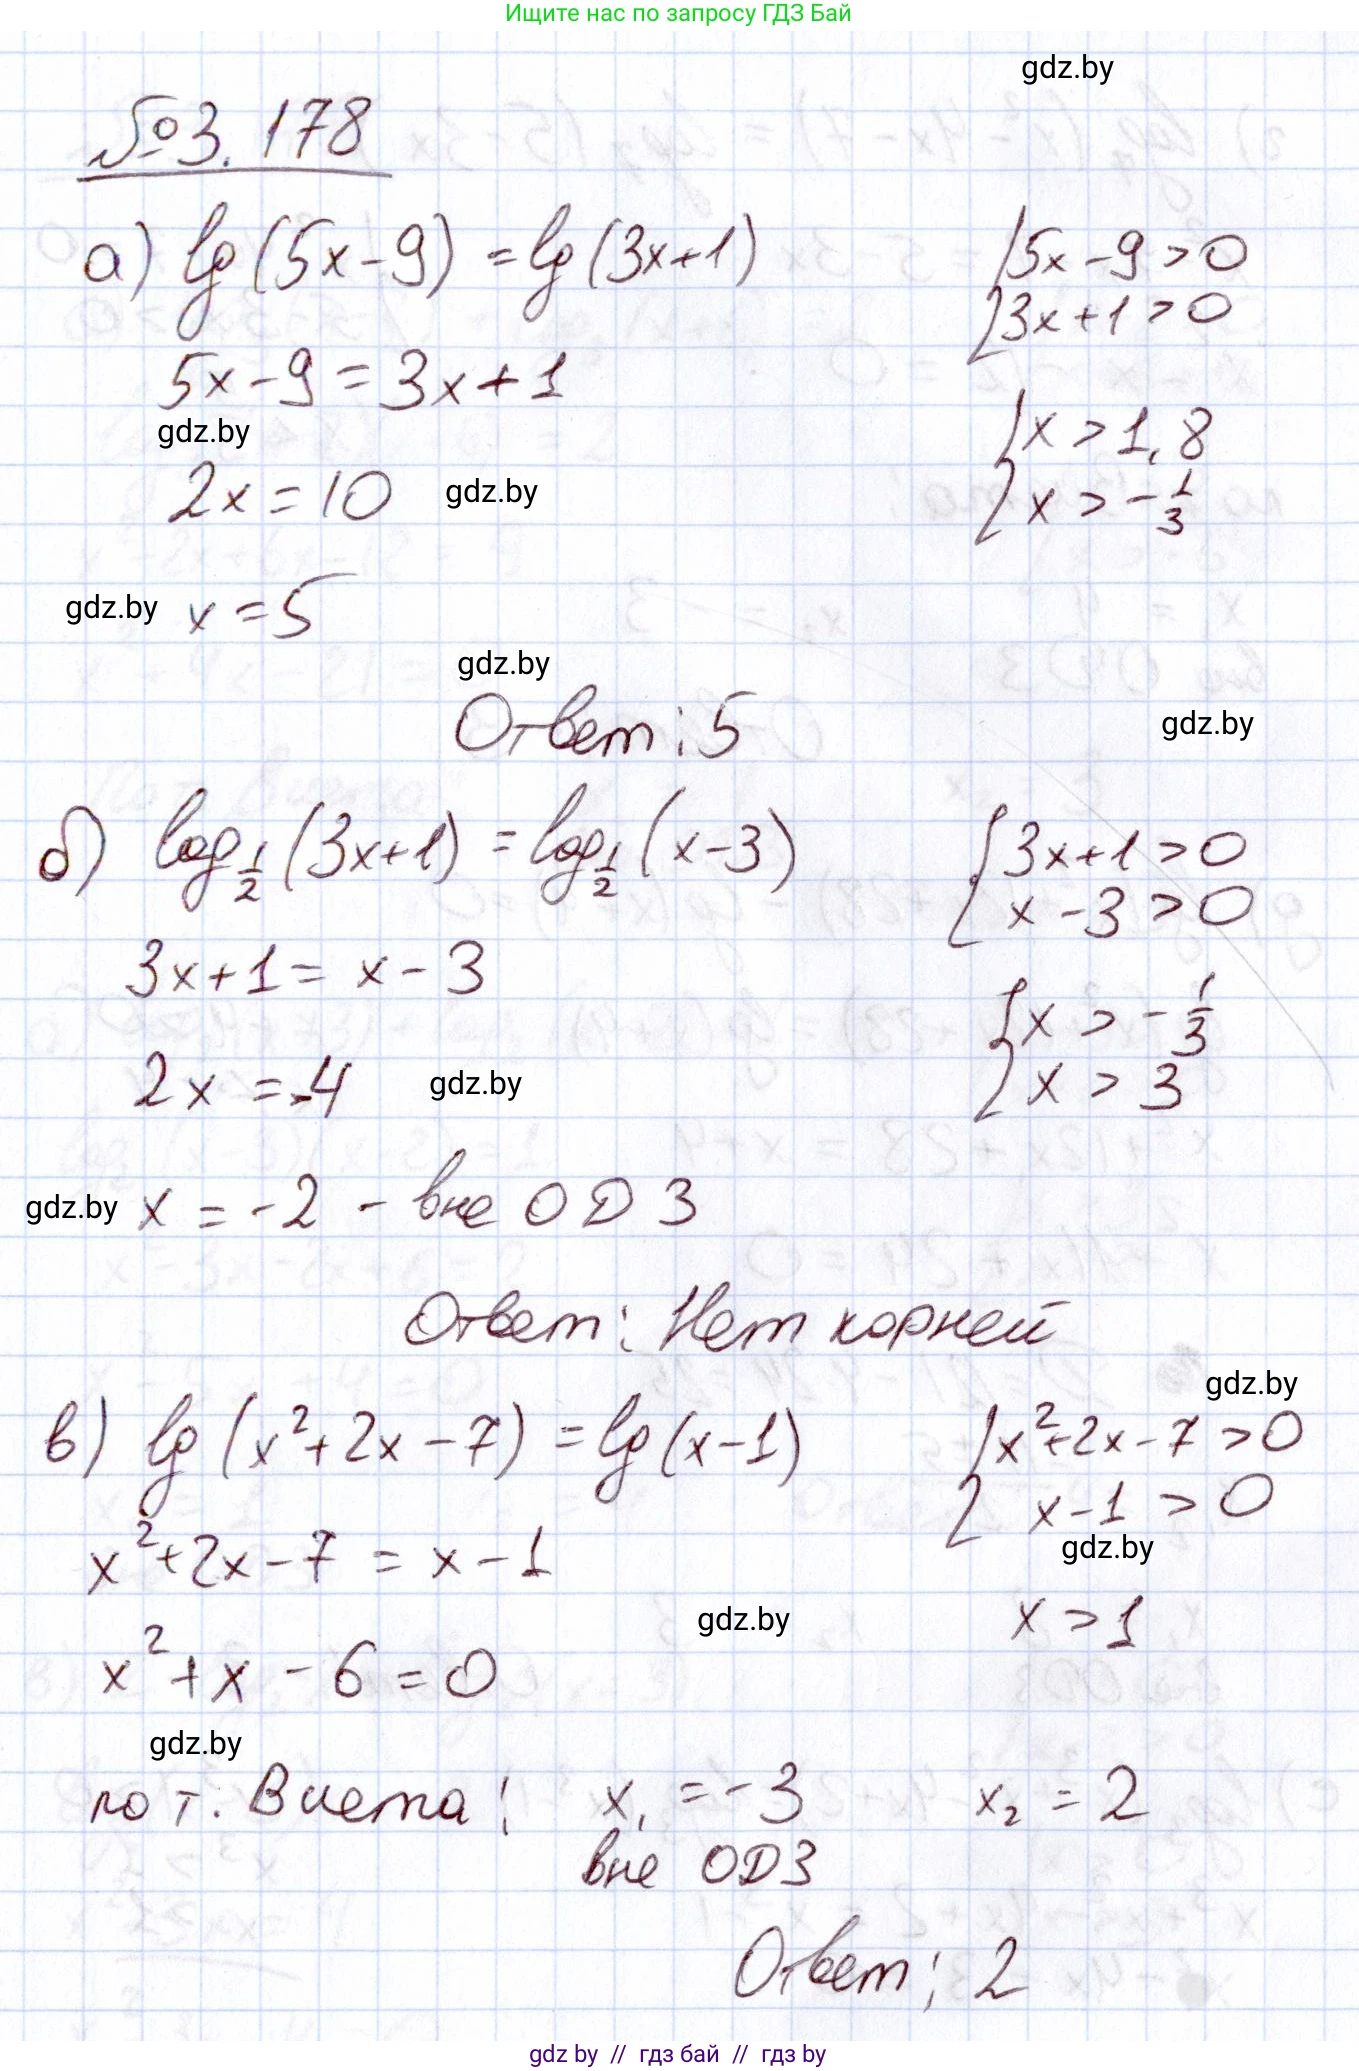 Ищите нас по запросу ГДЗ Бай
gdz.by
№3.178
а) lg(5x-9) = lg(3x+1)
{5x-9>0
{3x+1>0
5x-9=3x+1
gdz.by
{x>1,8
{x>-1/3
2x=10
gdz.by
gdz.by
x=5
gdz.by
Ответ: 5
gdz.by
б) log_{1/2}(3x+1) = log_{1/2}(x-3)
{3x+1>0
{x-3>0
3x+1= x-3
{x>-1/3
{x>3
2x=-4
gdz.by
gdz.by
x=-2 - вне ОДЗ
Ответ: Нет корней
gdz.by
в) lg(x²+2x-7) = lg(x-1)
{x²+2x-7>0
{x-1>0
gdz.by
x²+2x-7 = x-1
x>1
gdz.by
x²+x-6=0
gdz.by
по т. Виета: x₁=-3 x₂=2
вне ОДЗ
Ответ: 2
gdz by // гдз бай // гдз by